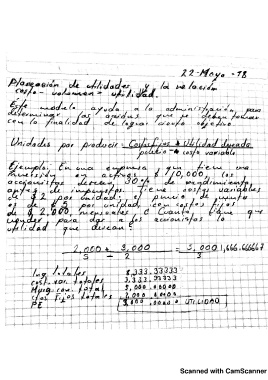 22-Mayo-18
Planeación de utilidades y la relación
costo-volumen-utilidad.
Este modulo ayuda a la administración para
determinar las que se deben tomar
con la finalidad de lograr cierto objetivo
Unidades por producir = Costos fijos + Utilidad deseada
costo variable
Ejemplo: En una empresa que tiene una
inversión en activos $10,000, los
accionistas desean 30% de rendimiento,
antes de impuestos tiene costos variables
de $2 por unidad, el precio de venta
es de $5 por unidad, con costos fijos
de $2,000, ¿Cuanto tiene que
vender para dar a los accionistas la
utilidad que desean?
2,000 + 3,000 = 5,000 1,666.666667
5 - 2 3
Ing. totales 8,333.33333
cost. var. totales 3,333.33333
Marg. con. total 5,000.0000
costos fijos totales 2,000.0000
3,000.0000 UTILIDAD
Scanned with CamScanner